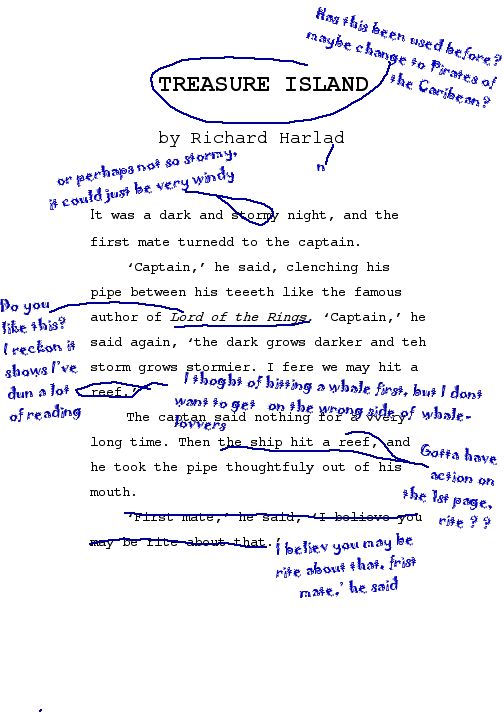 Has this been used before?
maybe change to Pirates of
the Caribean?
TREASURE ISLAND
by Richard Harlad
n
or perhaps not so stormy,
it could just be very windy
It was a dark and stormy night, and the
first mate turnedd to the captain.
‘Captain,’ he said, clenching his
pipe between his teeeth like the famous
author of Lord of the Rings, ‘Captain,’ he
said again, ‘the dark grows darker and teh
storm grows stormier. I fere we may hit a
reef.’
Do you
like this?
I reckon it
shows I've
dun a lot
of reading
I thoght of hitting a whale first, but I dont
want to get on the wrong side of whale-
lovvers
The captan said nothing for a vvery
long time. Then the ship hit a reef, and
he took the pipe thoughtfuly out of his
mouth.
Gotta have
action on
the 1st page,
rite ? ?
‘First mate,’ he said, ‘I believe you
may be rite about that.’
I believ you may be
rite about that, frist
mate,' he said